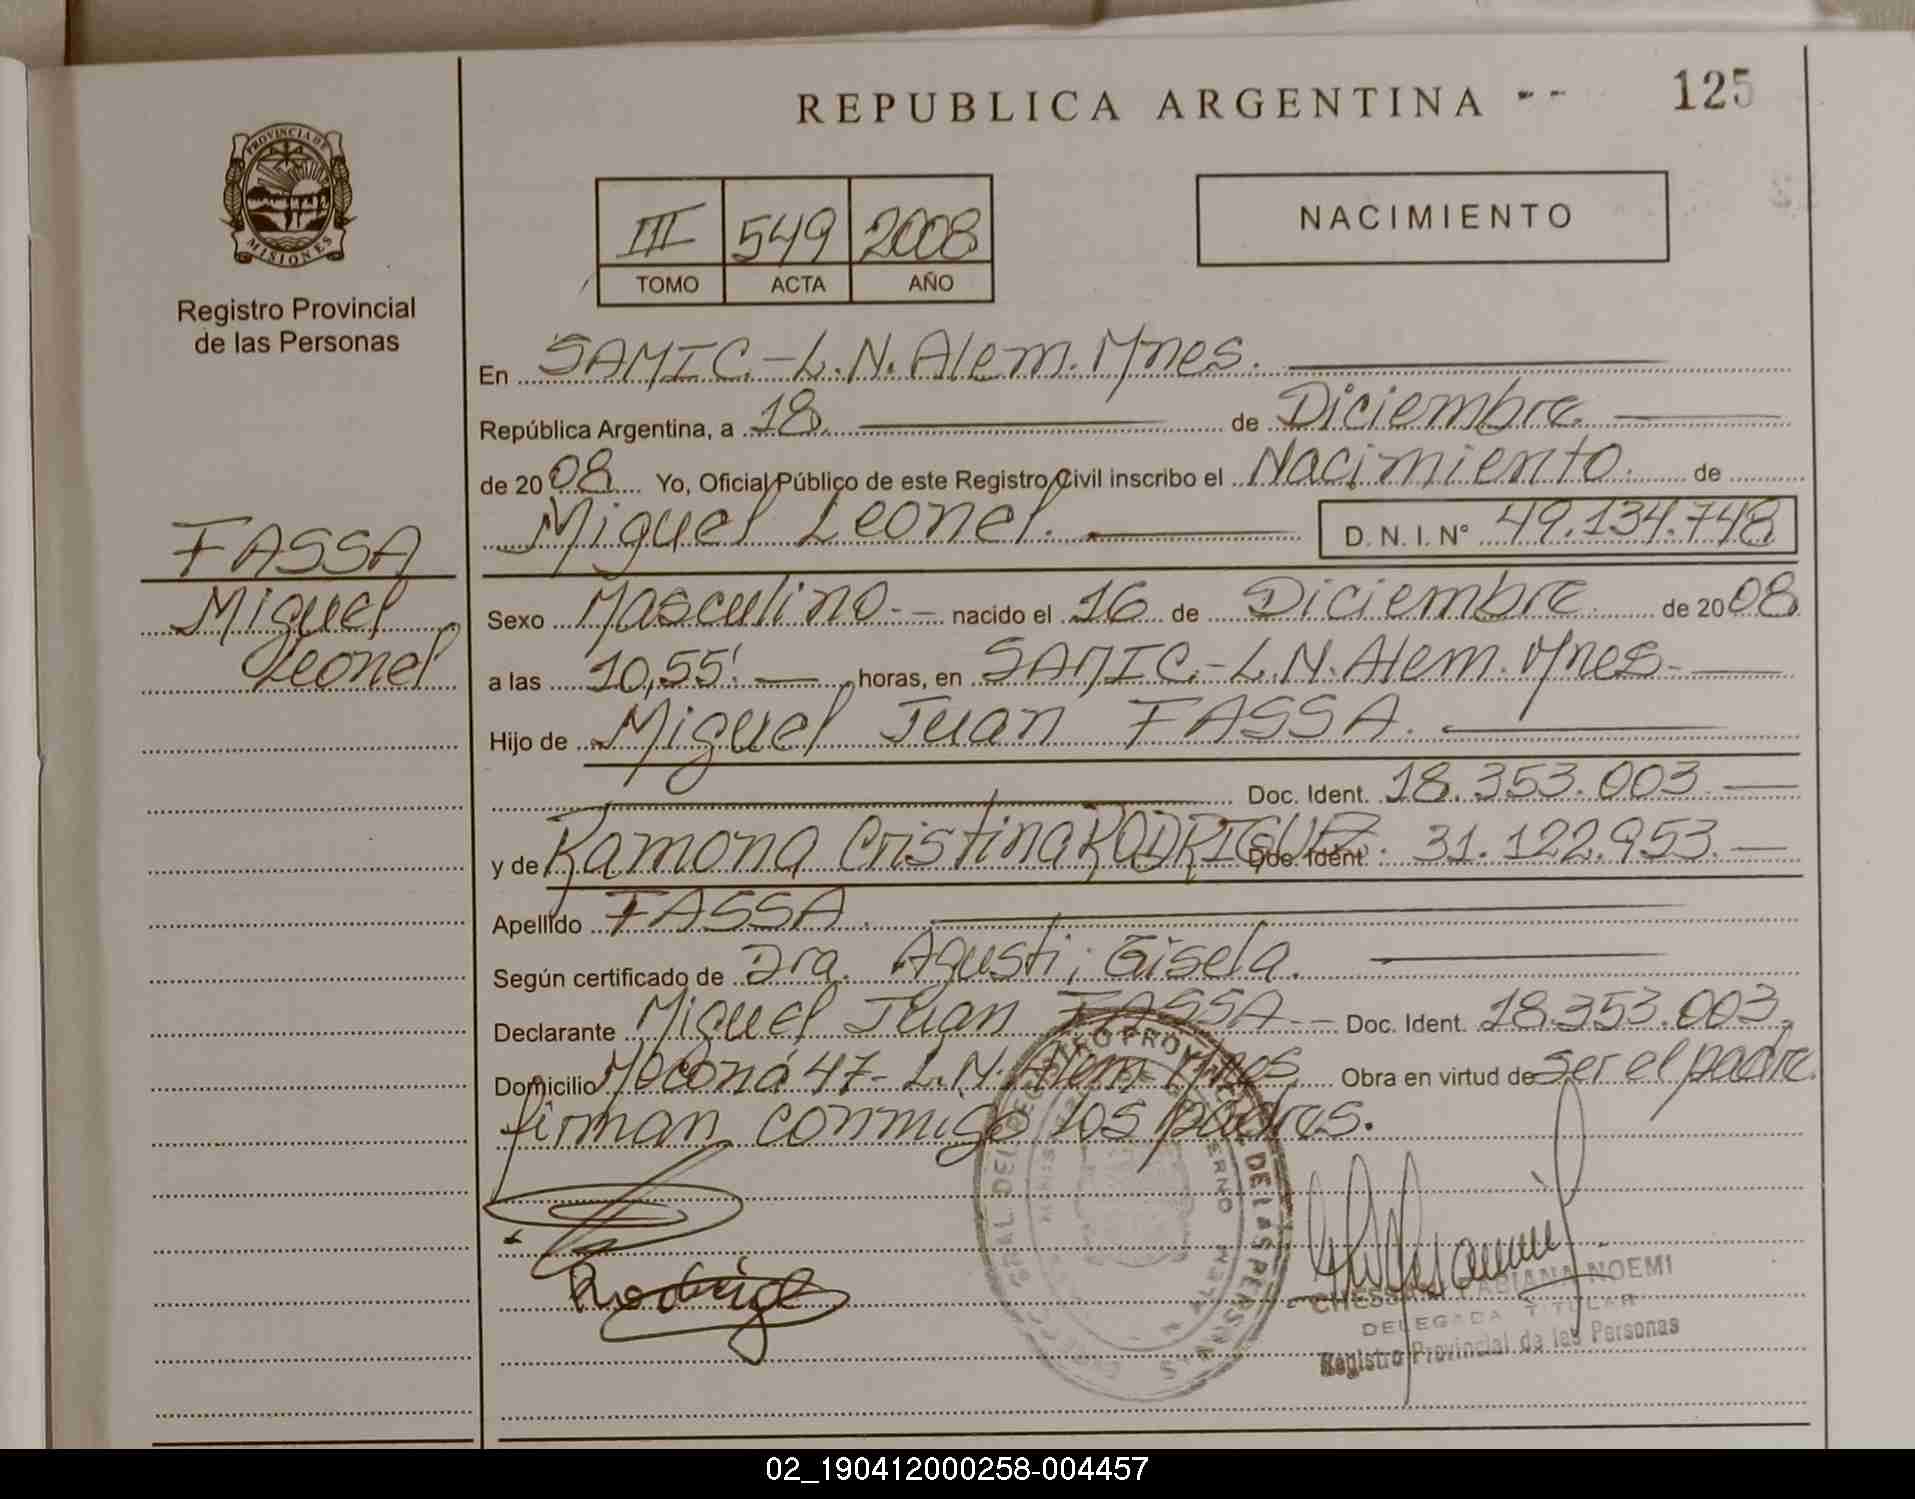 REPUBLICA ARGENTINA --
125
PROVINCIA DE
MISIONES
Registro Provincial
de las Personas
III 549 2008
TOMO ACTA AÑO
NACIMIENTO
En SAMIC.-L.N.Alem.Mnes.
República Argentina, a 18. de Diciembre.
de 2008. Yo, Oficial Público de este Registro Civil inscribo el Nacimiento. de
Miguel Leonel. D. N. I. N° 49.134.748
FASSA
Miguel
Leonel
Sexo Masculino.- nacido el 16 de Diciembre de 2008.
a las 10,55'. horas, en SAMIC.-L.N.Alem.Mnes.-
Hijo de Miguel Juan FASSA.
Doc. Ident. 18.353.003
y de Ramona Cristina RODRIGUEZ Doc. Ident. 31.122.953.
Apellido FASSA.
Según certificado de Dra. Agusti; Gisela.
Declarante Miguel Juan FASSA.- Doc. Ident. 18.353.003.
Domicilio Moconá 47- L.N. Alem-Mnes. Obra en virtud de ser el padre.
firman conmigo los padres.
Rodrigue
FABIANA NOEMI
DELEGADA TITULAR
Registro Provincial de las Personas
02_190412000258-004457